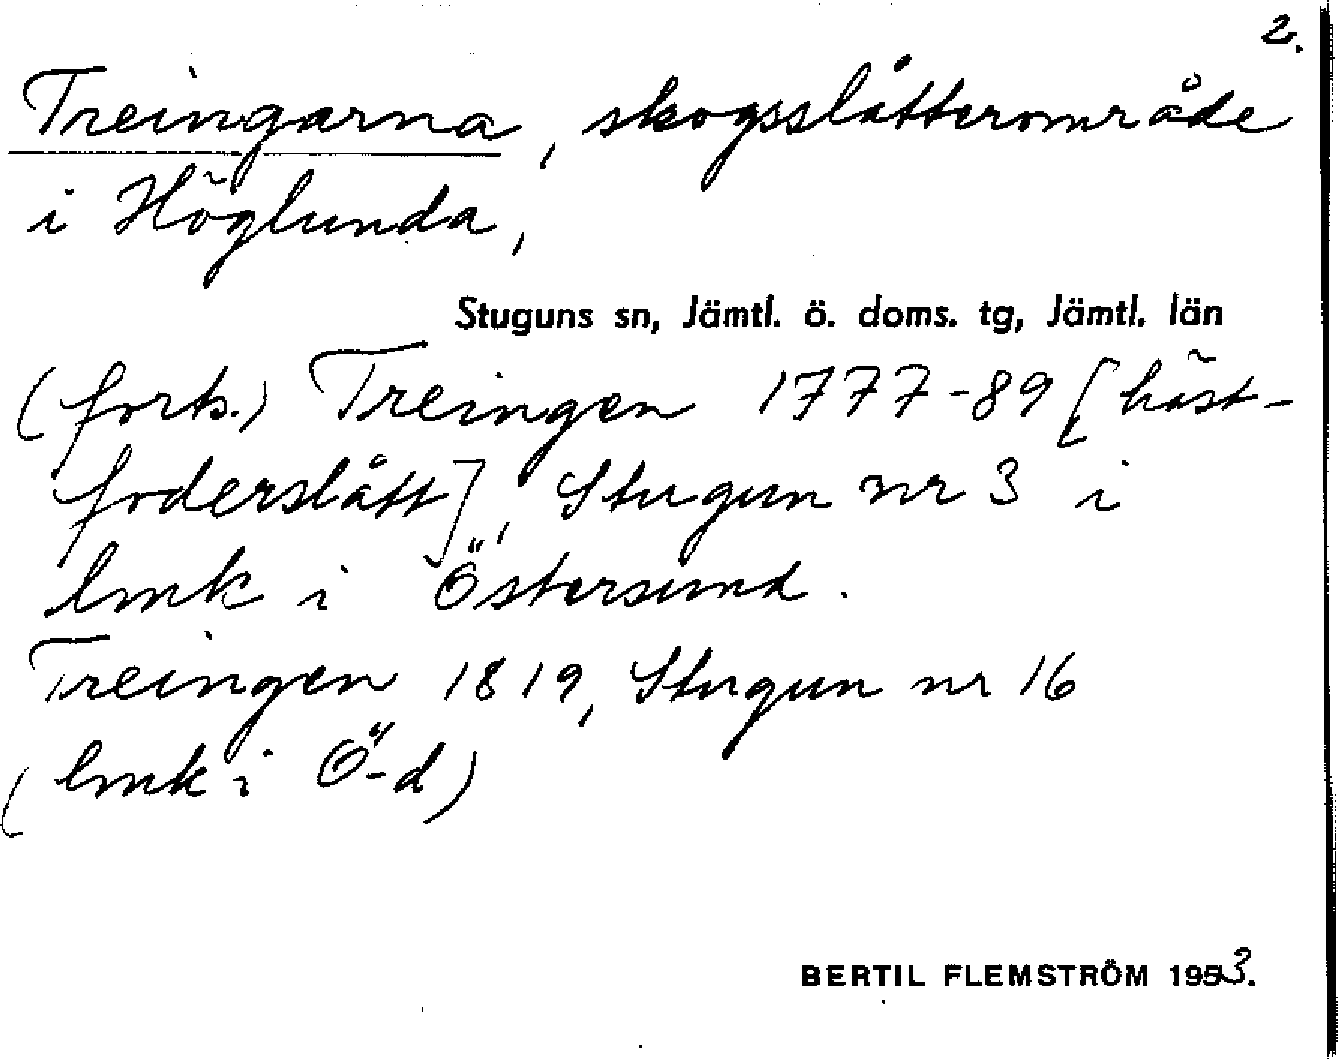 2.
Treingarna, skogsslåtterområde
i Höglunda,
Stuguns sn, Jämtl. ö. doms. tg, Jämtl. län
(forts.) Treingen 1777-89 [häst-
foderslått], Stugun nr 3 i
lmk i Östersund.
Treingen 1819, Stugun nr 16
(lmk i Ö-d)
BERTIL FLEMSTRÖM 1953.